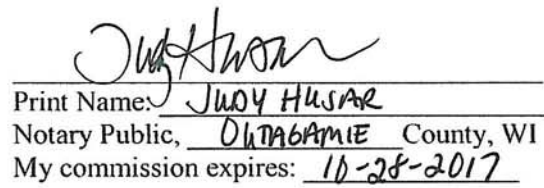 Judy Husar
Print Name: JUDY HUSAR
Notary Public, OUTAGAMIE County, WI
My commission expires: 10-28-2017